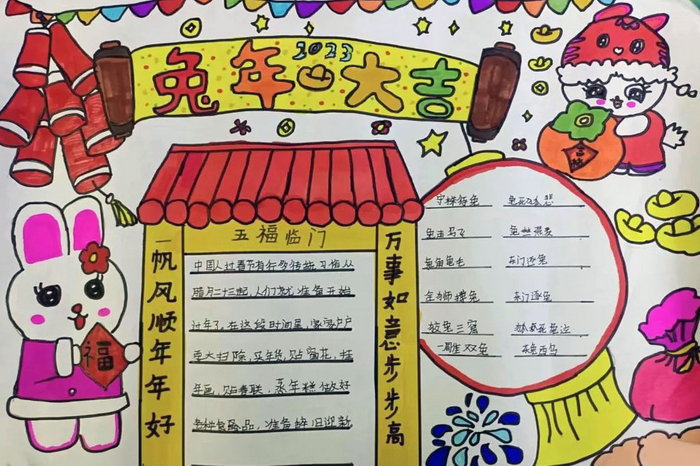 2023
兔年大吉
五福临门
一帆风顺年年好
万事如意步步高
中国人过春节有
腊月二十三起,人们就准备开始
过年了,在这段时间里,家家户户
要大扫除,买年货,贴窗花,挂
年画,贴春联,蒸年糕,做好
各种食品,准备辞旧迎新
守株待兔 兔死狐悲
兔走乌飞 兔丝燕麦
兔角龟毛 东门逐兔
搏兔 东门逐兔
狡兔三窟
一雕双兔 东兔西乌
福
吉